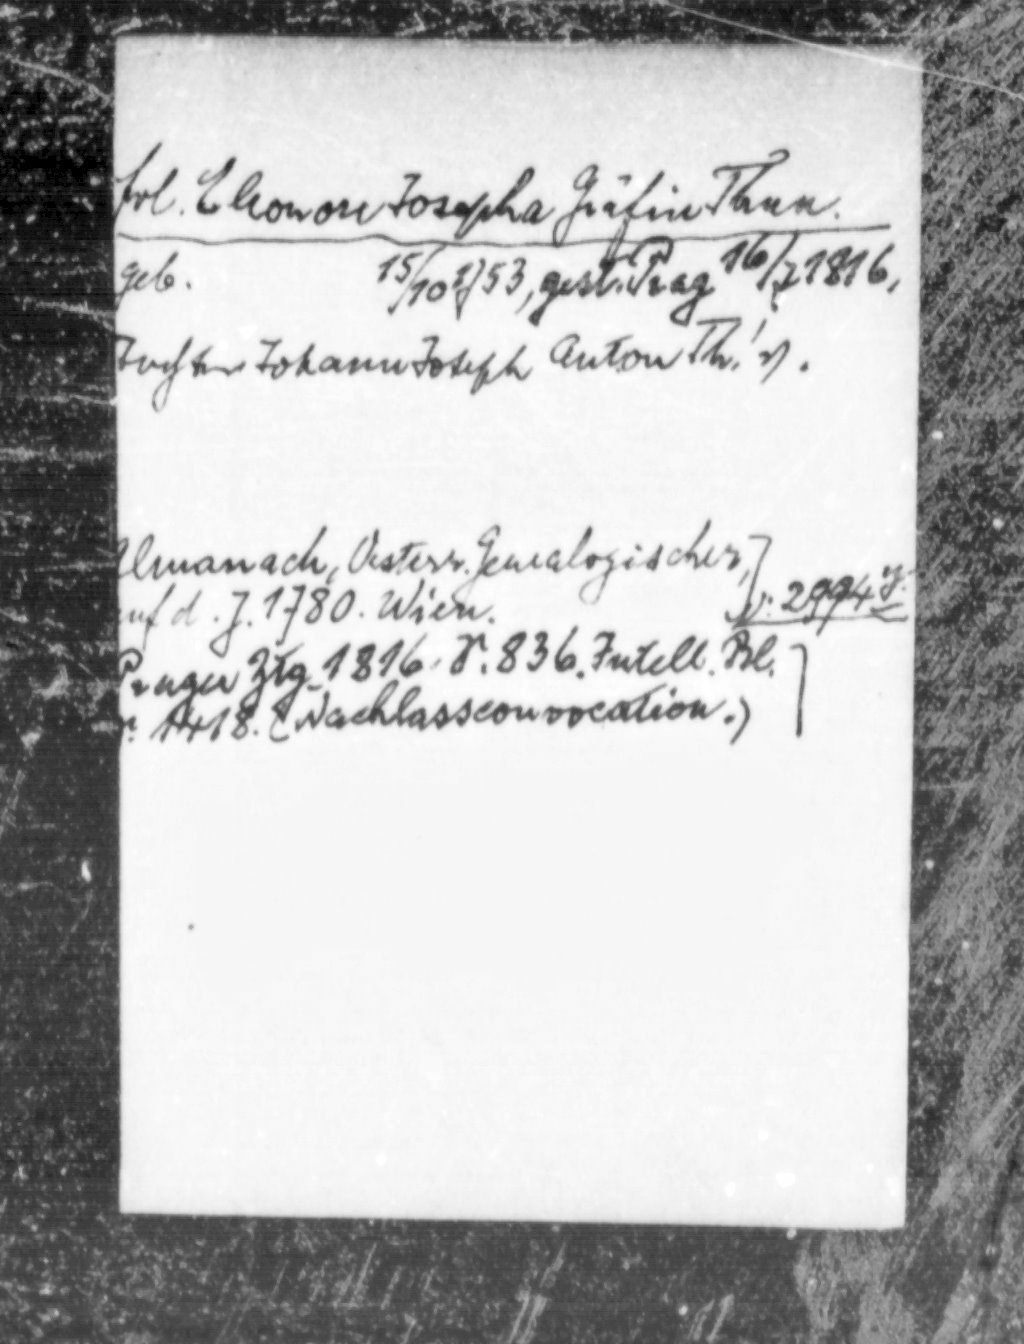 Frl. Eleonore Josepha Gräfin Thun.
geb. 15/10 1753, gest. Prag 16/7 1816,
Tochter Johann Joseph Anton Th.'s.
Almanach, Oesterr. Genealogischer,
auf d. J. 1780. Wien.
v: 2994
Prager Ztg. 1816. S. 836. Intell. Bl.
n: 1418. (Nachlassconvocation.)